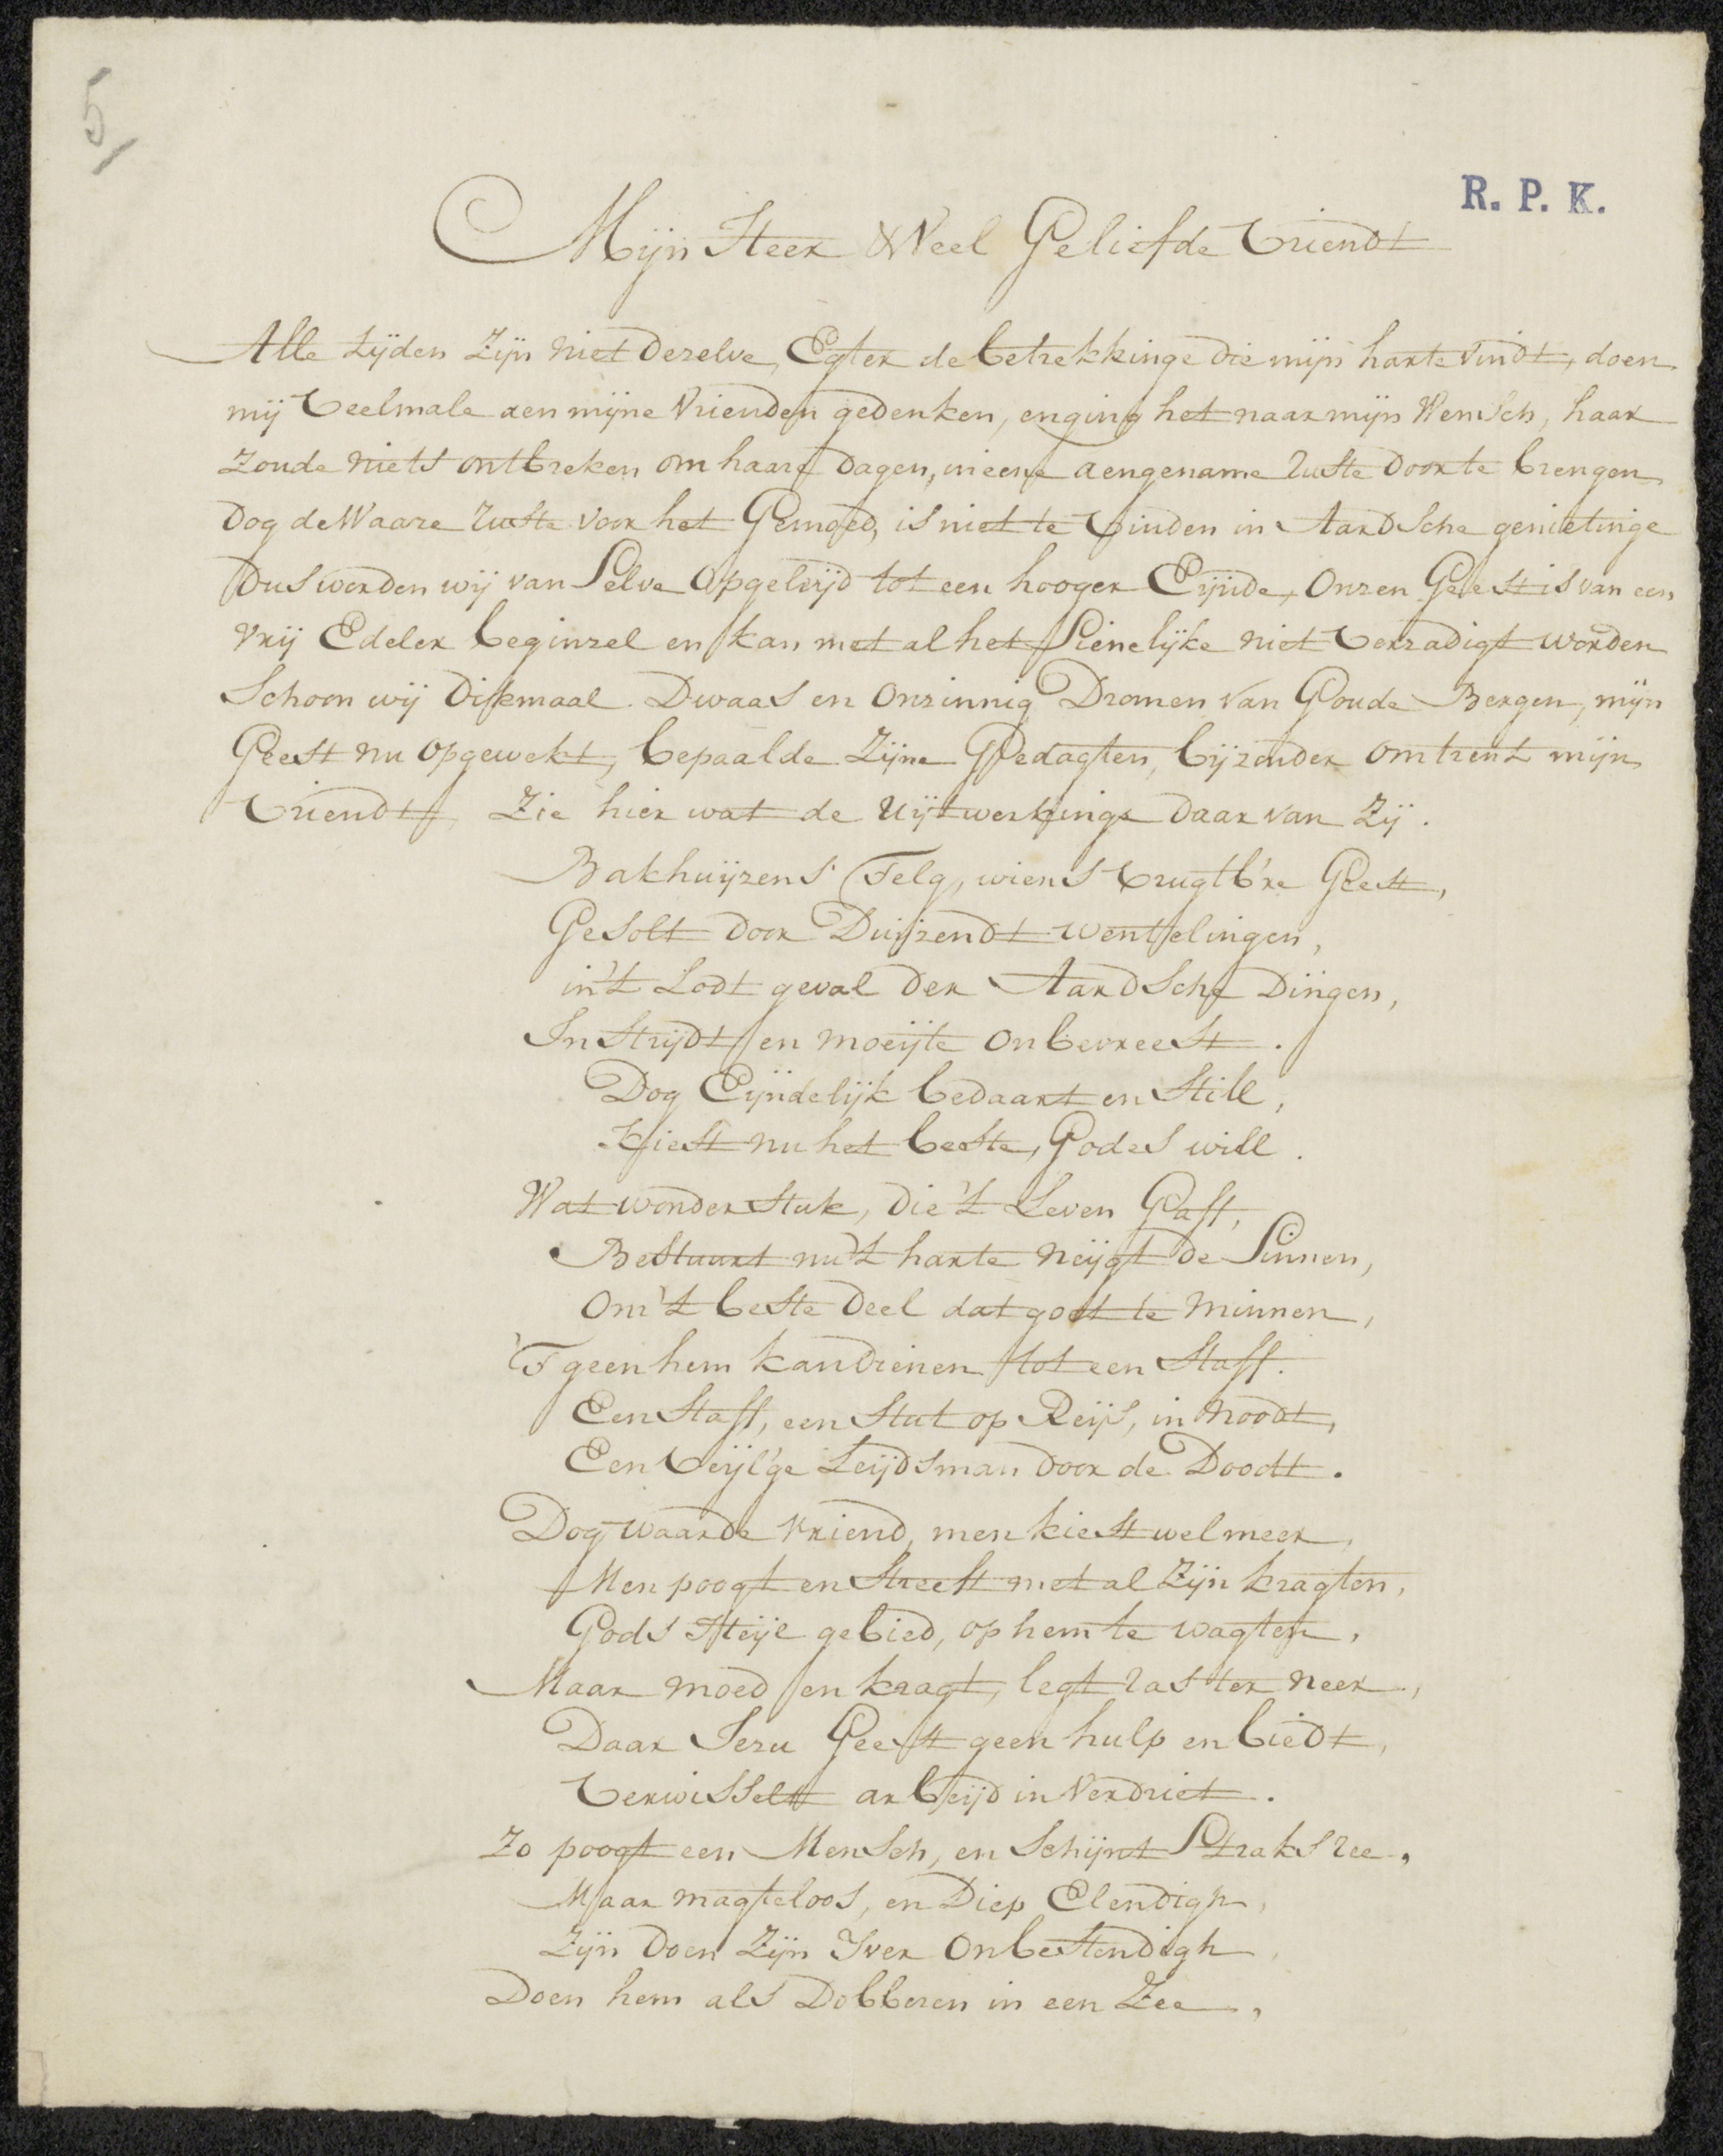 5
R. P. K.
Mijn Heer & Veel Geliefde Vriendt
Alle tijden Zijn niet Dezelve, Egter de betrekkinge die mijn harte vindt, doen
mij Veelmale aen mijne Vrienden gedenken, en ging het naar mijn Wensch, haar
Zoude niets ontbreken om haare Dagen, in eene aengename ruste door te brengen
Dog de Waare ruste voor het Gemoed, is niet te Vinden in Aardsche genietinge
Dus worden wij van Selve Opgeleijd tot een hooger Eijnde, Onzen Geest is van een
Vrij Edeler beginzel en kan met al het Sienelijke niet Verzadigt worden
Schoon wij Dikmaal Dwaas en Onzinnig Dromen van Goude Bergen, mijn
Geest nu Opgewekt, bepaalde Zijne Gedagten, bijzonder omtrent mijn
Vriendt, Zie hier wat de Uijtwerkinge daar van Zij.
Bakhuijzens Telg, wiens Vrugtb're Geest,
Gesolt door Duijzendt wentelingen,
in't Lodt geval der Aardsche Dingen,
In Strijdt en moeijte onbevreest.
Dog Eijndelijk bedaart en Still,
Kiest nu het beste, Godes will.
Wat wonder Stuk, die't Leven Gaff,
Bestuurt nu't harte neijgt de Sinnen,
Om't beste Deel dat goet te Minnen,
'T geen hem kan dienen tot een Staff.
Een Staff, een Stut op Reijs, in Noodt,
Een Veijl'ge Leijdsman door de Doodt.
Dog waarde Vriend, men kiest wel meer,
Men poogt en Streeft met al Zijn kragten,
Gods Heijl gebied, op hem te wagten,
Maar moed en kragt, legt ras ter neer,
Daar Jezu Geest geen hulp en biedt,
Verwisselt arbeijd in Verdriet.
Zo poogt een Mensch, en Schijnt Straks ree,
Maar magteloos, en Diep Elendigh,
Zijn doen Zijn Yver Onbestendigh
Doen hem als Dobberen in een Zee,